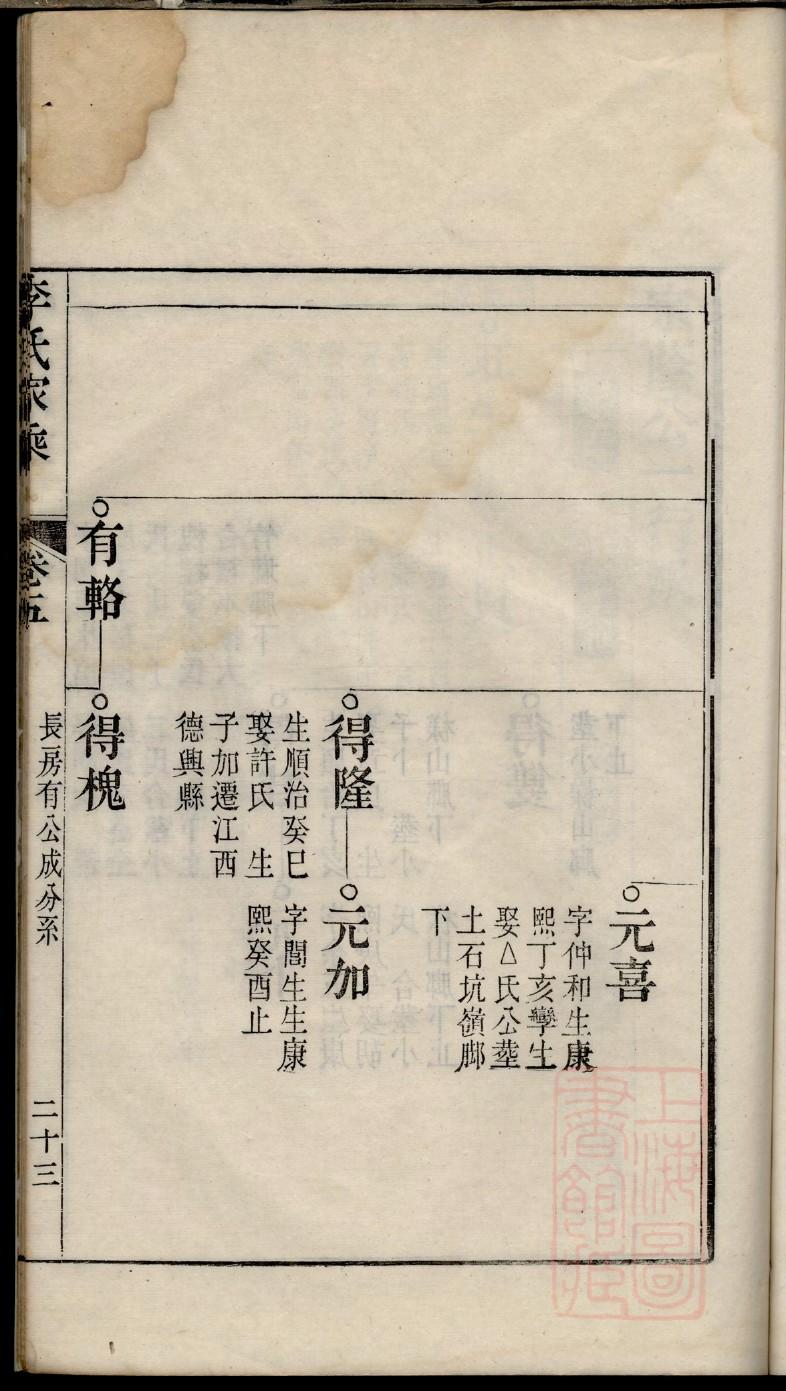 元喜
字仲和生康
熙丁亥孿生
娶△氏公塟
土石坑嶺脚
下
得隆
生順治癸巳
娶許氏 生
子加遷江西
德興縣
元加
字閏生生康
熙癸酉止
有輅
得槐
李氏家乘
卷五
長房有公成分系
二十三
上海圖
書館藏